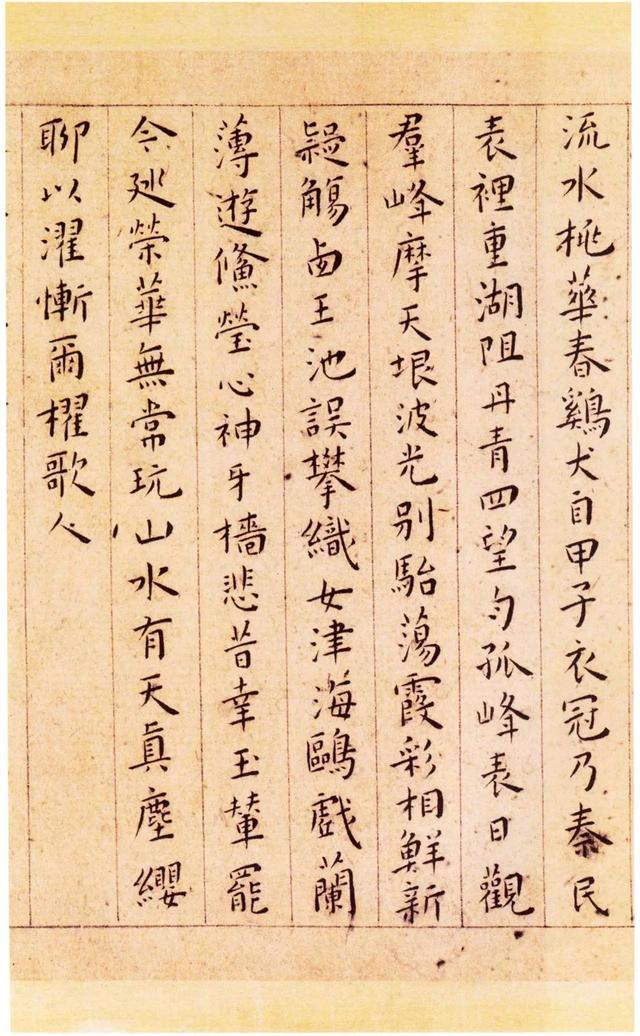 流水桃華春鷄犬自甲子衣冠乃秦民
表裡重湖阻丹青四望勻孤峰表日觀
羣峰摩天垠波光別駘蕩霞彩相鮮新
疑觴卥王池誤攀織女津海鷗戲蘭
薄遊儵瑩心神牙檣悲昔幸玉輦罷
今廵榮華無常玩山水有天眞塵纓
聊以濯慚爾櫂歌人